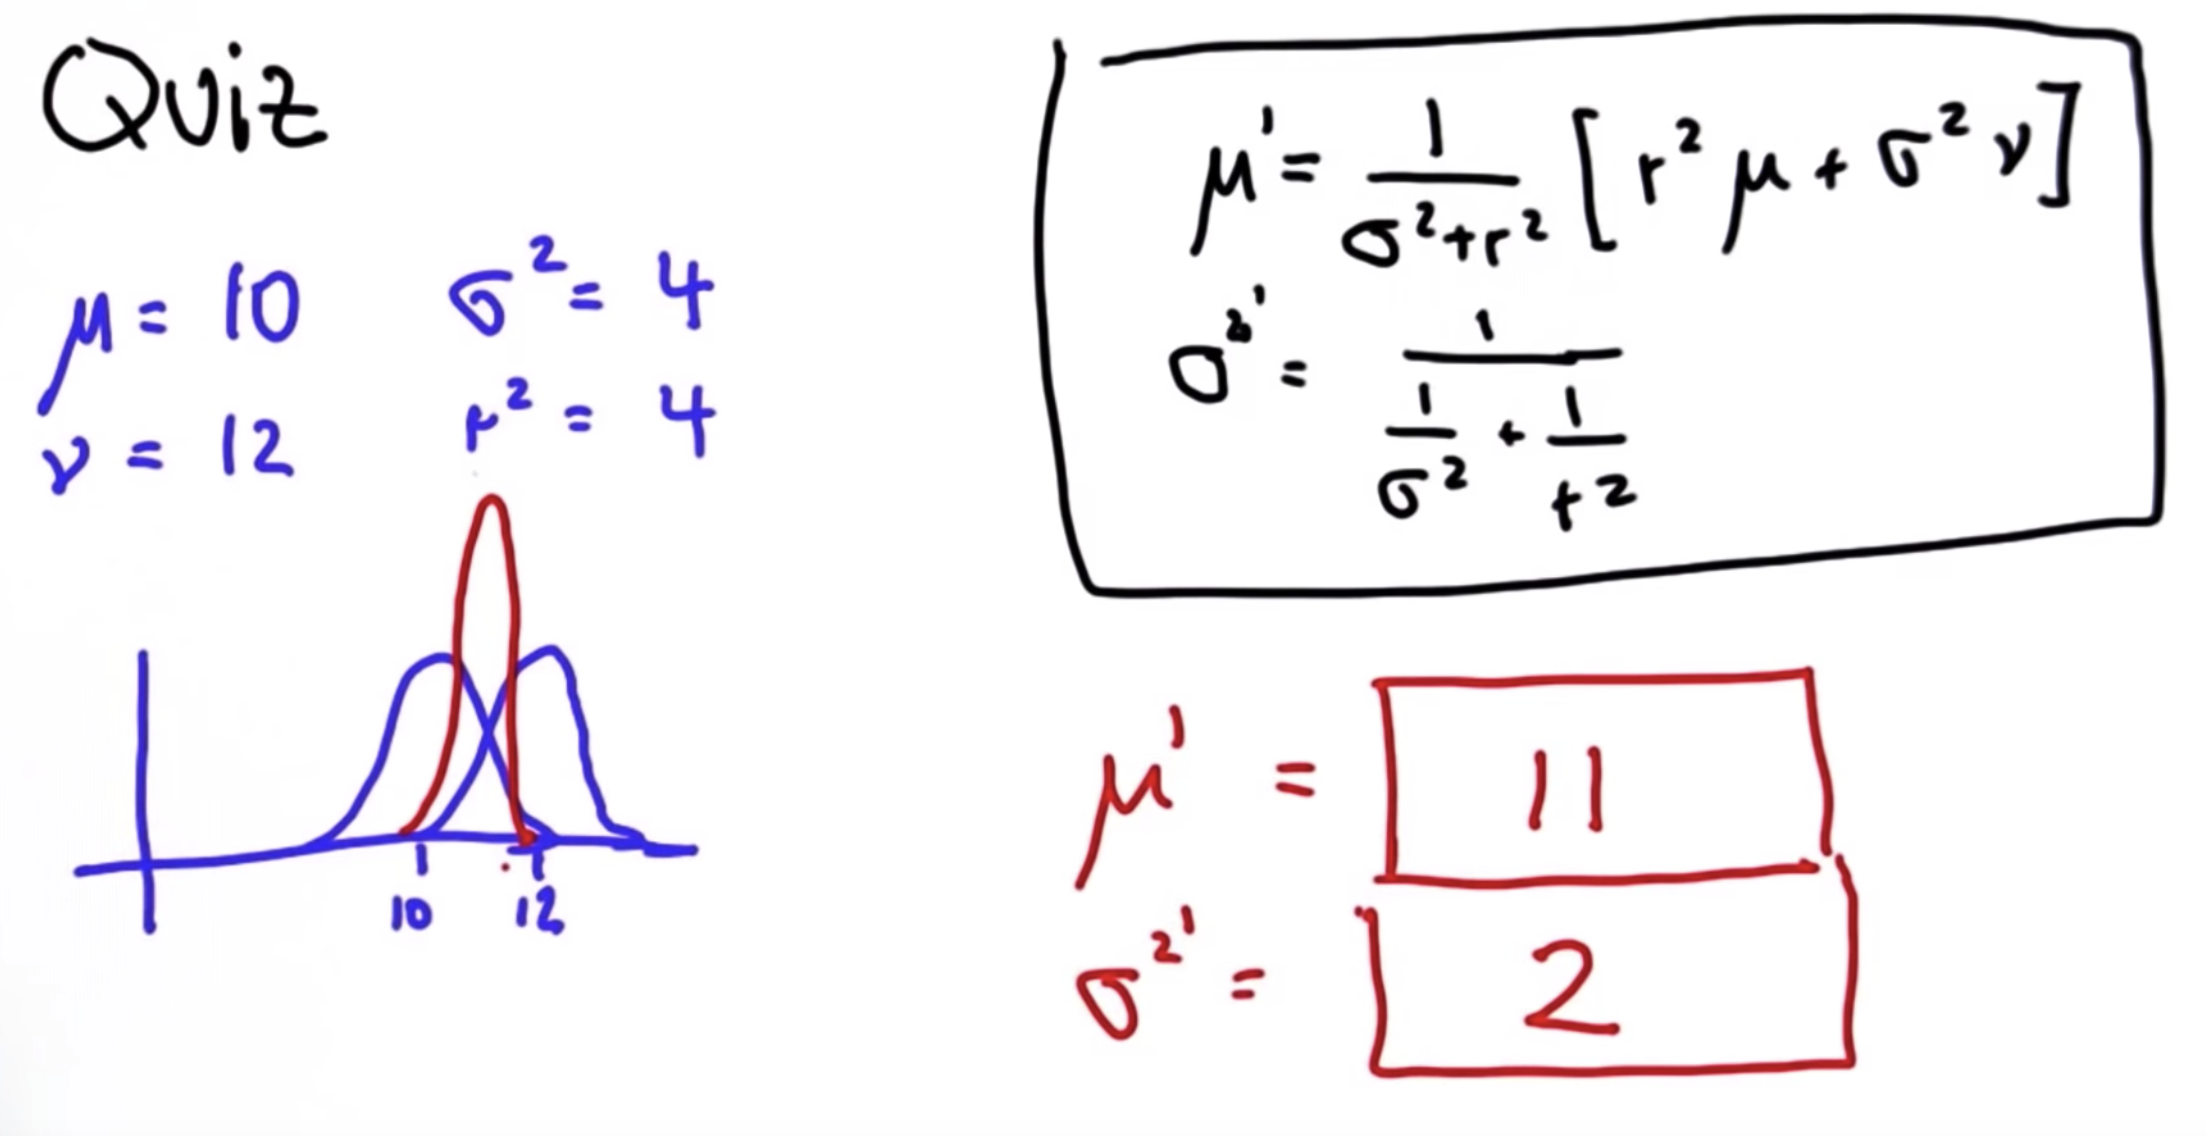 Quiz
μ = 10 σ² = 4
ν = 12 r² = 4
10 12
μ' = 1/(σ² + r²) [r²μ + σ²ν]
σ²' = 1/(1/σ² + 1/r²)
μ' = 11
σ²' = 2